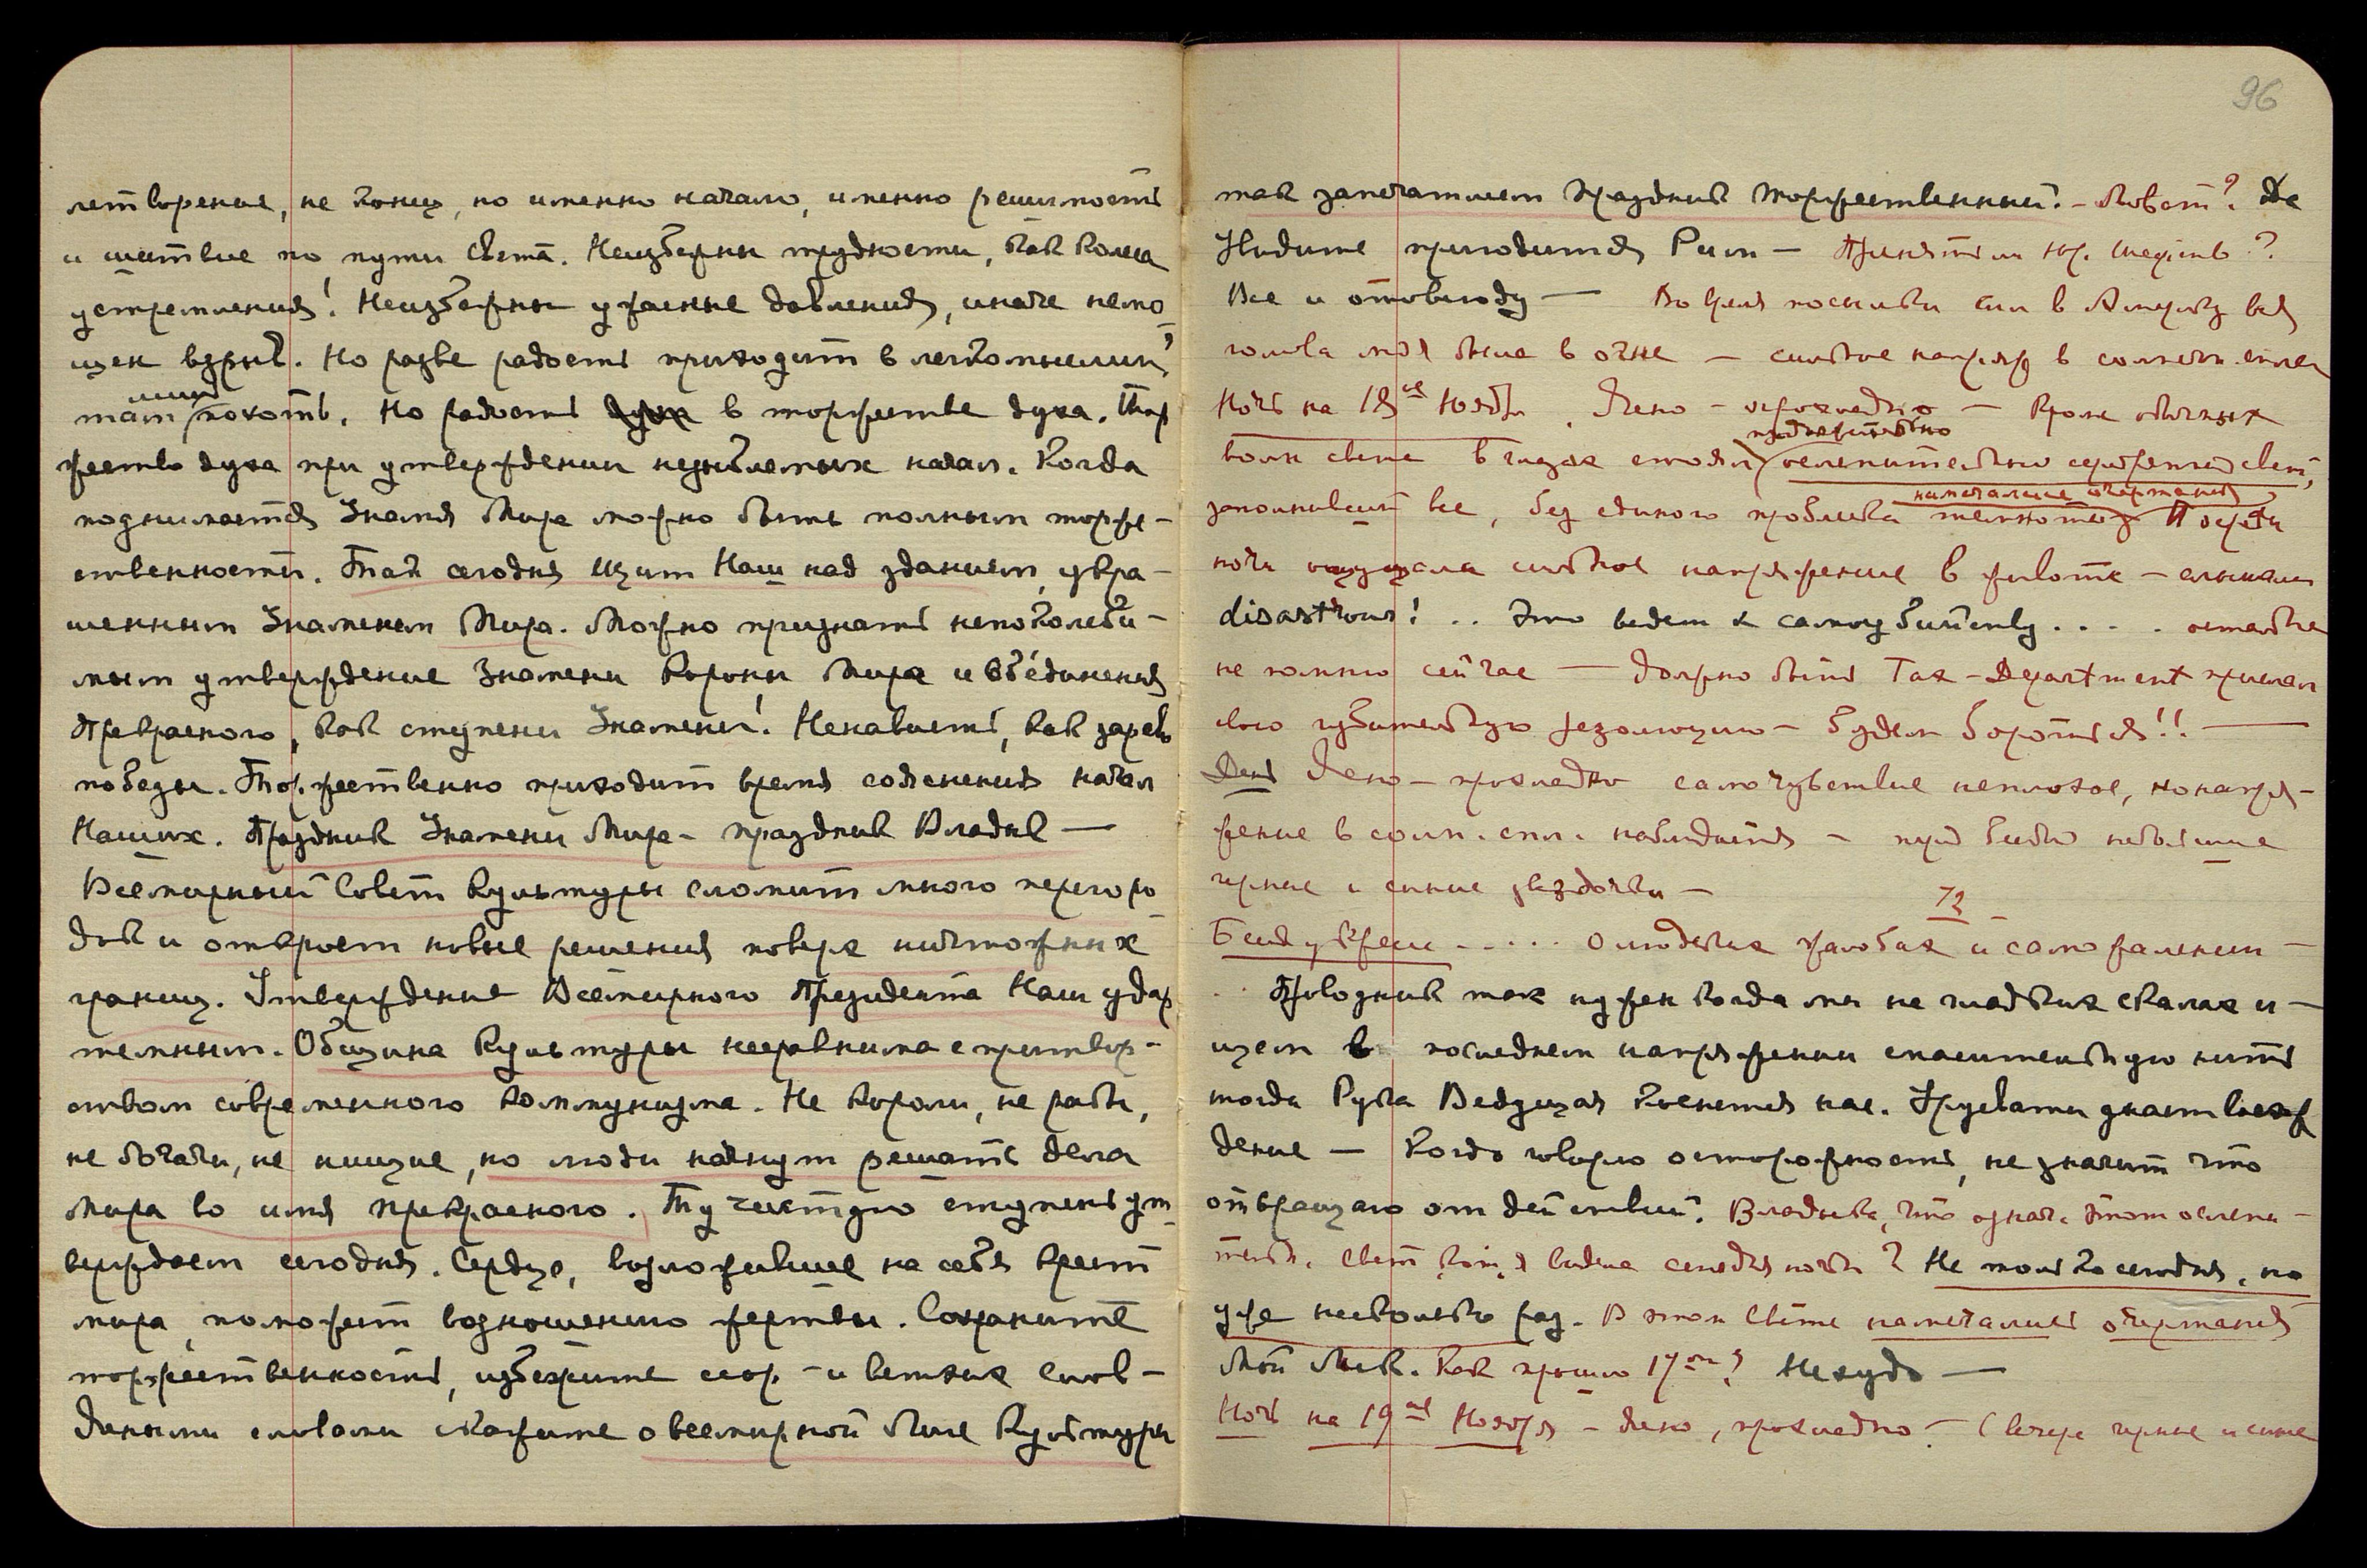 летворение, не конец, но именно начало, именно решимость
и шествие по пути Света. Неизбежны трудности, как колеса
устремления! Неизбежны ужасные давления, иначе немо-
щен взрыв. Но разве радость приходит в легкомыслии,
там лишь похоть. Но радость в торжестве духа. Тор
жество духа при утверждении незыблемых начал. Когда
поднимается Знамя Мира можно быть полным торже-
ственности. Так сегодня Щит Наш над зданием, укра-
шенным Знаменем Мира. Можно признать непоколеби-
мым утверждение Знамени Короны Мира и объединения
Прекрасного, как ступени Знамени! Ненависть, как зарево
победы. Торжественно приходит время сояснения начал
Наших. Праздник Знамени Мира - праздник Владык —
Всемирный Совет Культуры сломит много перегоро-
док и откроет новые решения поверх ничтожных
границ. Утверждение Всемирного Президента Наш удар
темным. Община Культуры несравнима с притвор-
ством современного коммунизма. Не короли, не рабы,
не богачи, не нищие, но люди начнут решать дела
Мира во имя прекрасного. Ту чистую ступень ут-
верждаем сегодня. Сердце, возложившее на себя крест
мира, поможет возношению жертвы. Сохраните
торжественность, избежите ссор - и ветхих слов -
Иными словами скажите о всемирной Лиге Культуры
96
так запечатлеем праздник торжественный. - Ковст? Да
Увидите пригодится Рим — Принять ли Юр. ?
Все и отовсюду — Во время посылки сил в Америку вся
голова моя была в огне — сильное напряж в солнечн. сплет
Ночь на 18ое Ноябр. Ясно - прохладно — кроме обычных
волн света в глазах стоял ослепительно серебряный свет,
заполнивший все, без единого проблеска темноты намечались очертания Посреди
ночи ощущала сильное напряжение в животе - слышала
disastrous! .. Это ведет к самоубийству . . . . остальное
не помню сейчас — Должно быть Tax - Department прислал
свою губительную резолюцию - будем бороться!! —
День Ясно - прохладно самочувствие неплохое, но напря-
жение в солн. спл. наблюдается - мною видны небольшие
черные и синие звездочки —
72
Беседу врем ..... О людских жалобах и саможалении —
.. Проводник так нужен когда мы на гладких скалах и-
щем в последнем напряжении спасительную нить
тогда Рука Ведущая коснется нас. Урусвати знает восхож
дение — Когда говорю осторожность, не значит что
отвращаю от действий. Владыка, что означ. этот ослепи-
тельн. свет, кот. я видела сегодня ночью? Не только сегодня, но
уже несколько раз. В этом Свете намечались очертания
Мой Лик. Как прошло 17ое? Не худо —
Ночь на 19ое Ноября - Ясно, прохладно - С вечера черные и синие